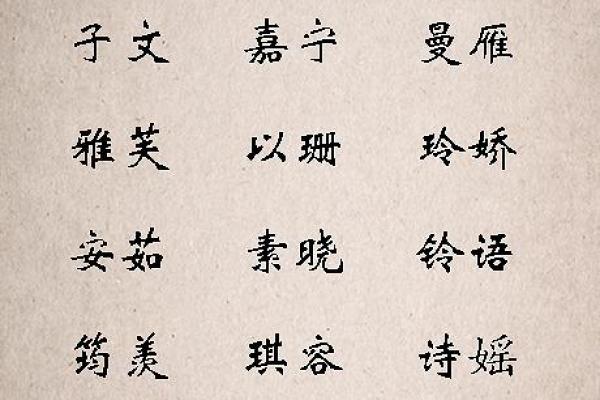 子文 嘉宁 曼雁
雅芙 以珊 玲娇
安茹 素晓 铃语
筠羡 琪容 诗婸